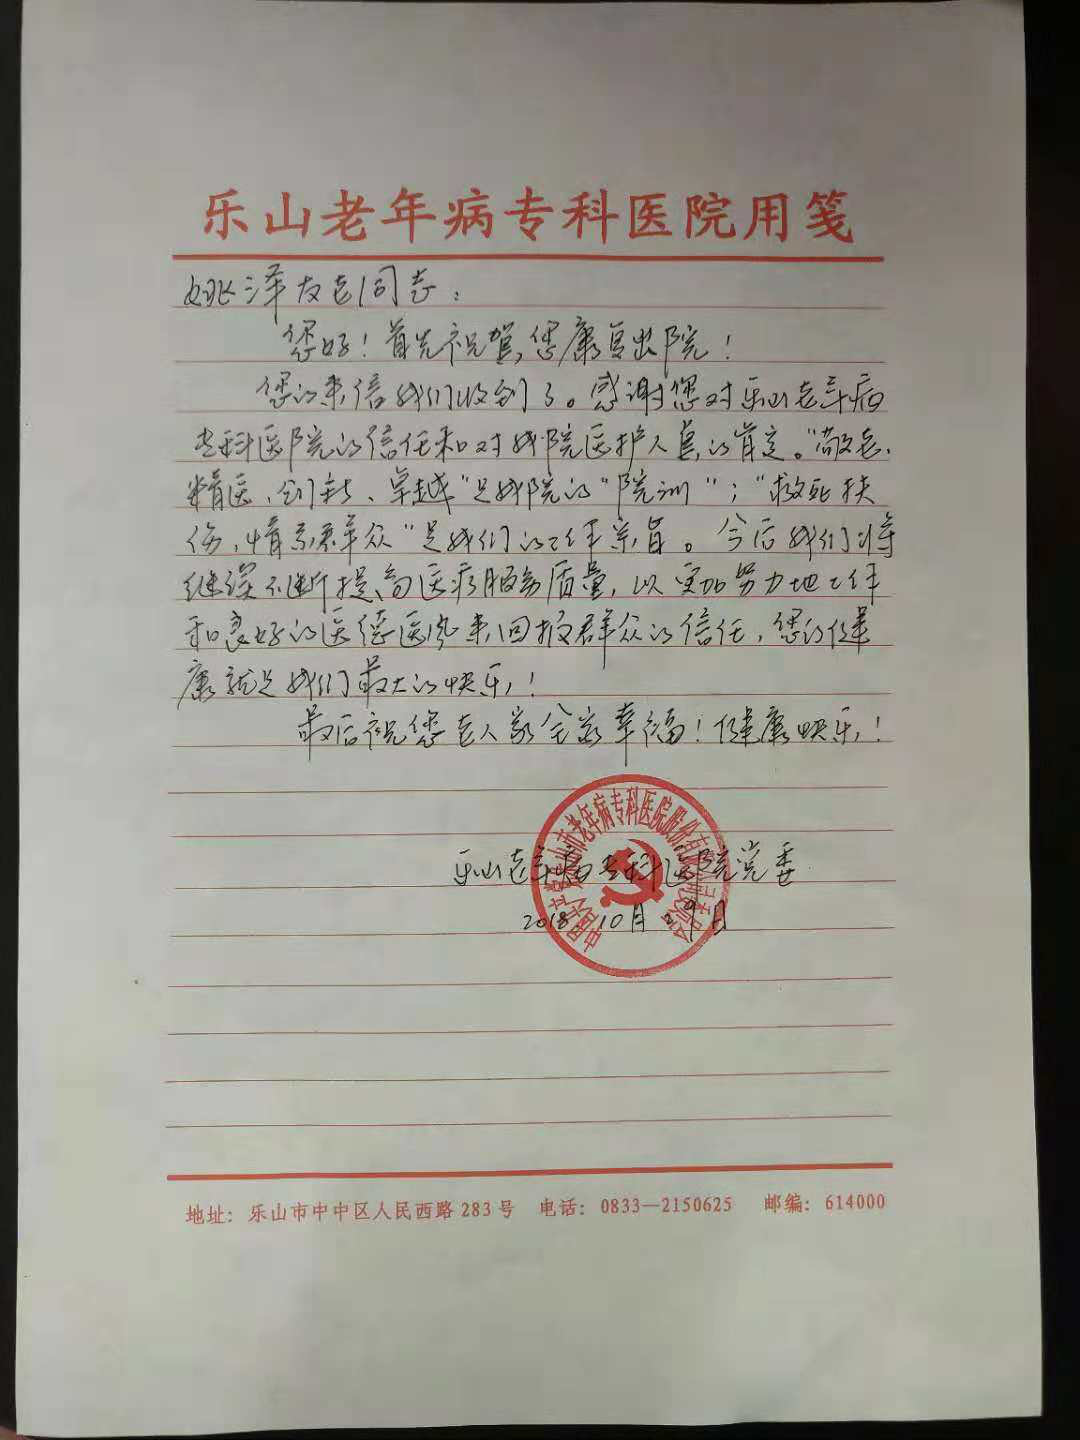 乐山老年病专科医院用笺
姚泽友老同志：
您好！首先祝贺，您康复出院！
您的来信我们收到了。感谢您对乐山老年病
专科医院的信任和对我院医护人员的肯定。“敬老、
精医、创新、卓越”是我院的“院训”；“救死扶
伤，情系群众”是我们的工作宗旨。今后我们将
继续不断提高医疗服务质量，以更加努力地工作
和良好的医德医风来回报群众的信任，您的健
康就是我们最大的快乐！
最后祝您老人家全家幸福！健康快乐！
乐山老年病专科医院党委
2018.10月29日
地址：乐山市中中区人民西路283号 电话：0833—2150625 邮编：614000